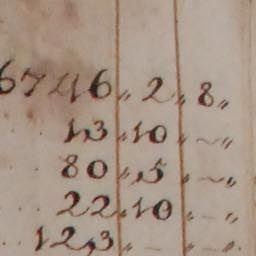 6746 " 2 " 8 "
13 " 10 " — "
80 " 5 " — "
22 " 10 " — "
123 " — " — "